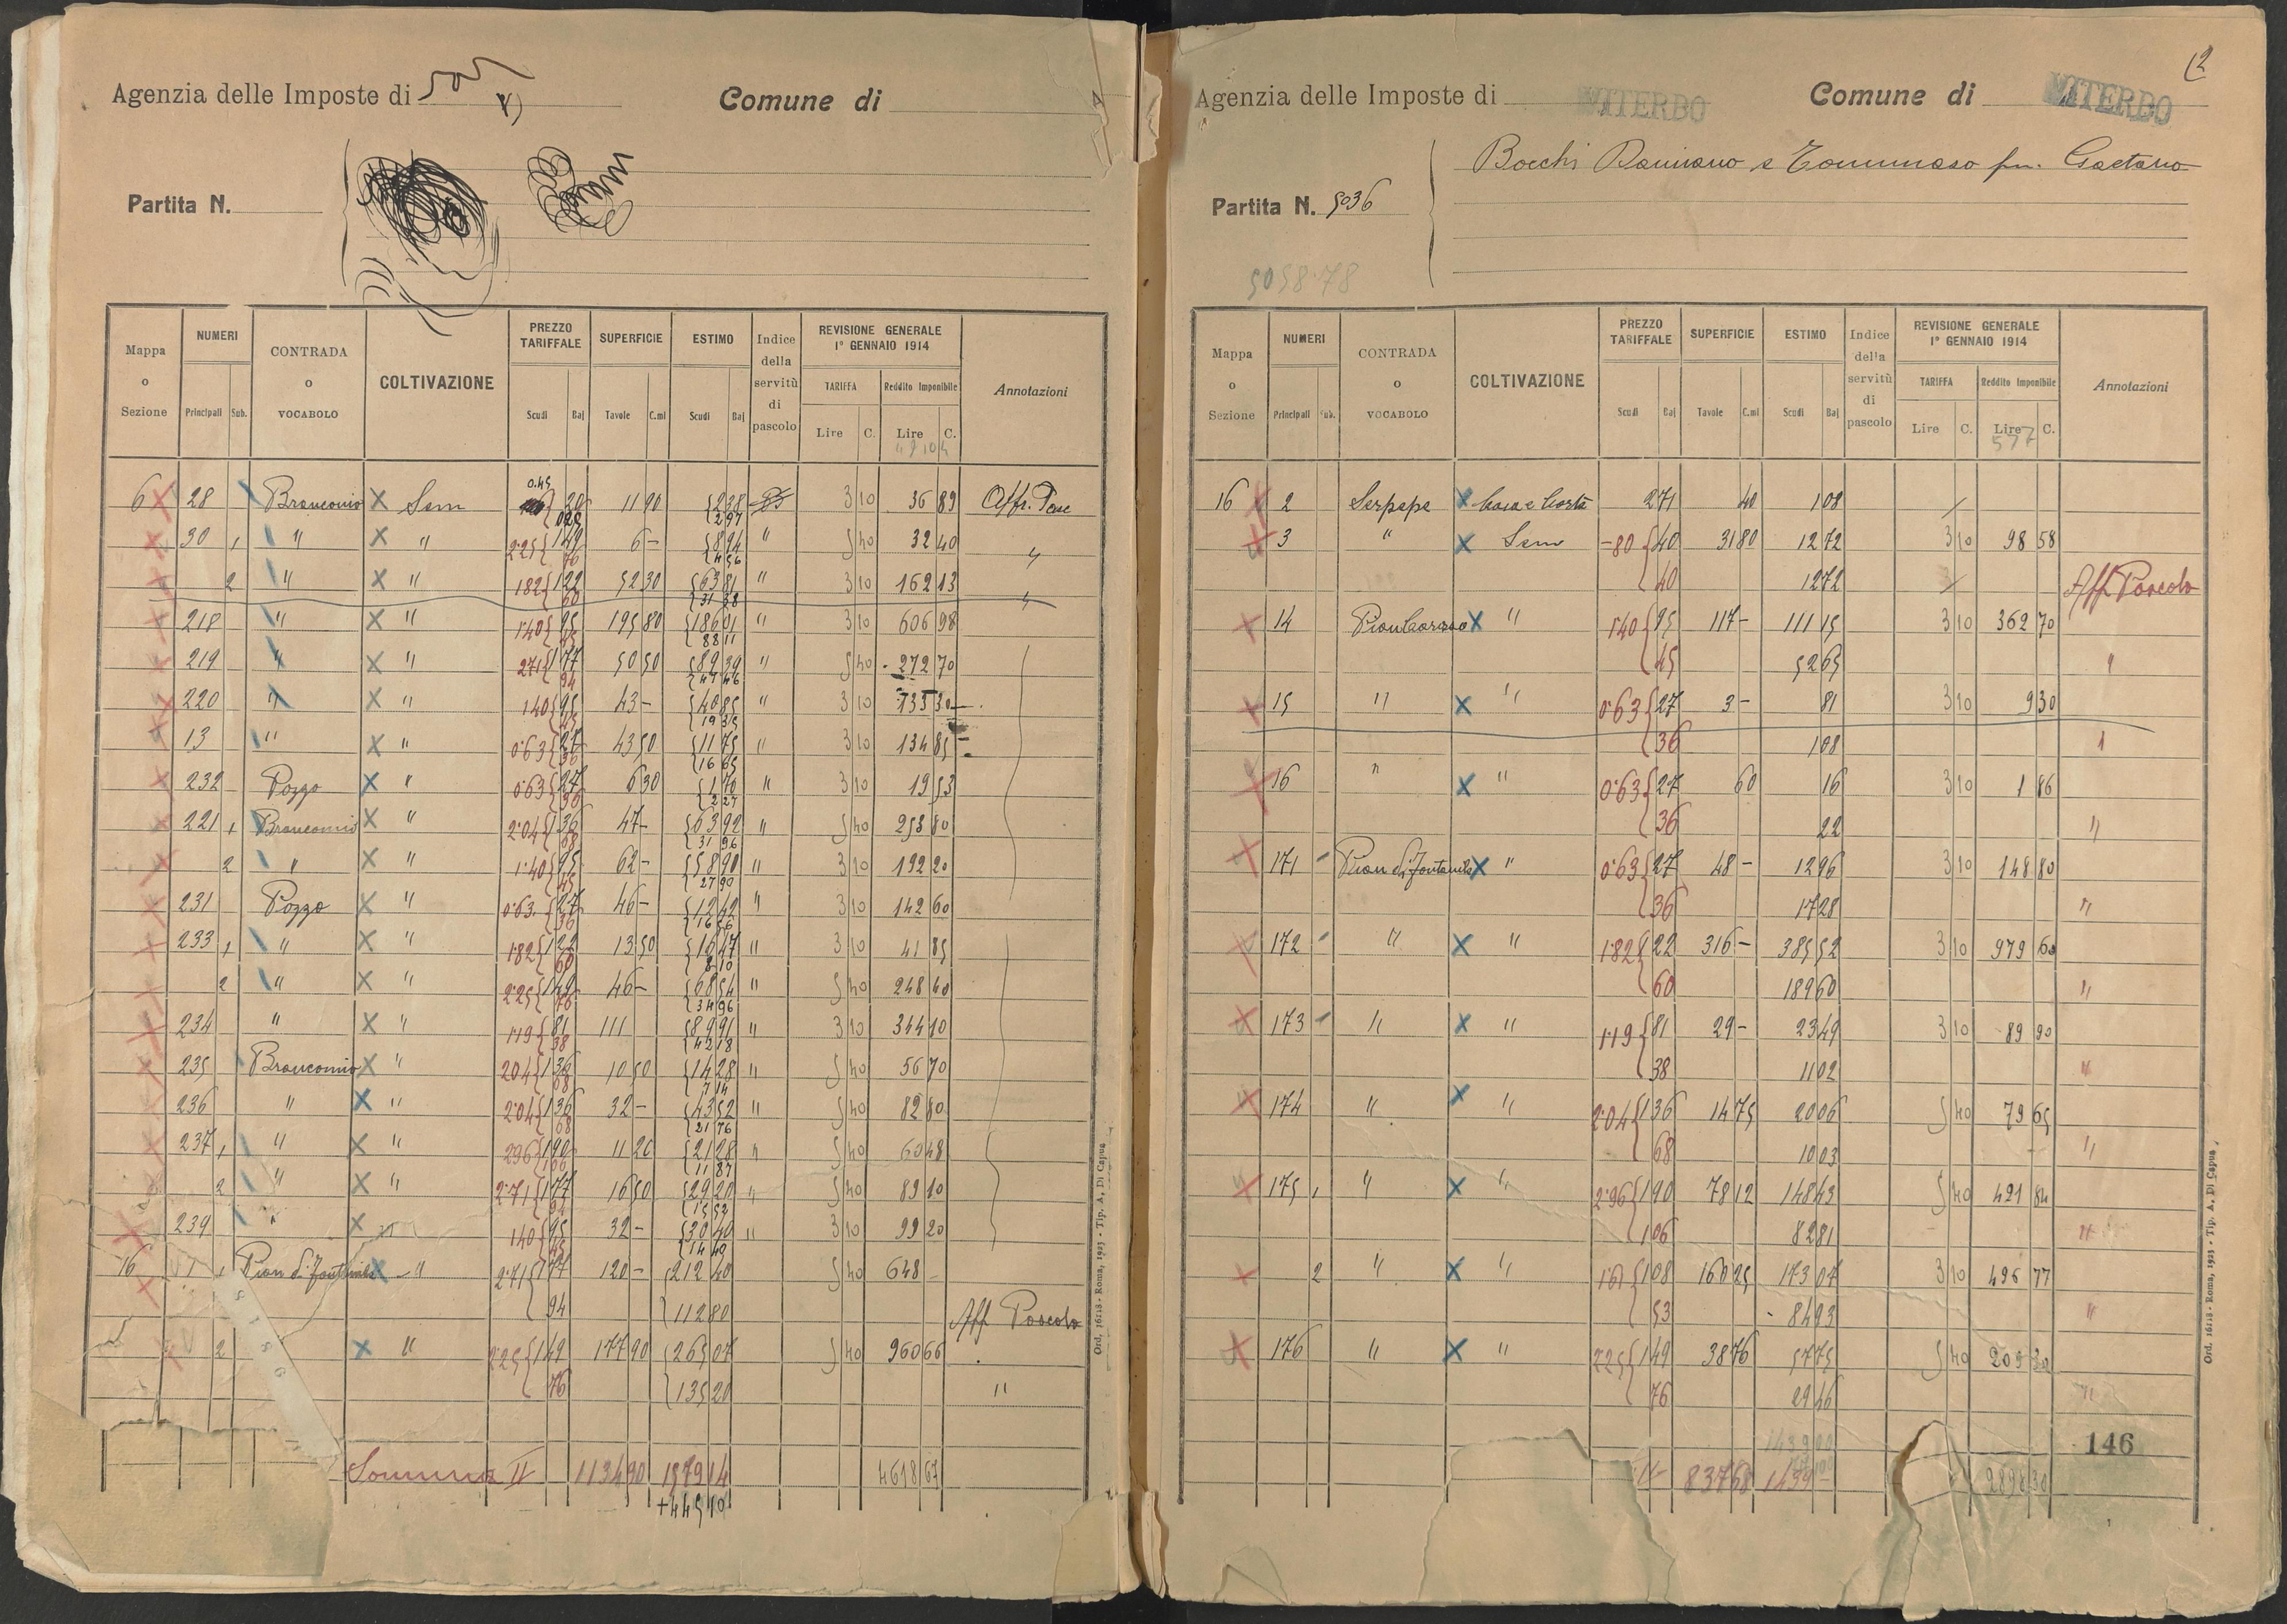 Agenzia delle Imposte di
Comune di
Partita N.
Mappa o Sezione | NUMERI Principali Sub. | CONTRADA o VOCABOLO | COLTIVAZIONE | PREZZO TARIFFALE Scudi Baj | SUPERFICIE Tavole C.mi | ESTIMO Scudi Baj | Indice della servitù di pascolo | REVISIONE GENERALE 1° GENNAIO 1914 TARIFFA Lire C. Reddito Imponibile Lire C. | Annotazioni
6 28 Branconio Sem 11 90 2 38 3 10 36 89
2 97
30 1 " " 2.25 1 49 6 - 8 94 " 5 40 32 40 "
76 4 56
2 " " 1 82 1 22 52 30 63 81 " 3 10 162 13 "
60 31 38
218 " " 1.40 95 195 80 186 01 " 3 10 606 98
45 88 11
219 " " 2 71 1 77 50 50 89 39 " 5 40 272 70
94 47 46
220 " " 1 40 95 43 - 40 85 " 3 10
45 19 35
13 " " 0.63 27 43 50 11 75 " 3 10 134 85
36 16 65
232 Pozzo " 0.63 27 6 30 1 70 " 3 10 19 53
36 2 27
221 1 Branconio " 2.04 1 36 47 - 63 92 " 5 40 253 80
68 31 96
2 " " 1.40 95 62 - 58 90 " 3 10 192 20
45 27 90
231 Pozzo " 0.63 27 46 - 12 42 " 3 10 142 60
36 16 56
233 1 " " 1 82 1 22 13 50 16 47 " 3 10 41 85
60 8 10
2 " " 2.25 1 49 46 - 68 54 " 5 40 248 40
76 34 96
234 " " 1 19 81 111 89 91 " 3 10 344 10
38 42 18
235 Branconio " 2 04 1 36 10 50 14 28 " 5 40 56 70
68 7 14
236 " " 2.04 1 36 32 - 43 52 " 5 40 82 80
68 21 76
237 1 " " 2 96 1 90 11 20 21 28 " 5 40 60 48
1 06 11 87
2 " " 2.71 1 77 16 50 29 20 " 5 40 89 10
94 15 52
239 " " 1 40 95 32 - 30 40 " 3 10 99 20
45 14 40
16 1 1 Pian di Fontanile " 2.71 1 77 120 - 212 40 5 40 648 -
94 112 80 Aff Pascolo
2 " 2.25 1 49 177 90 265 07 5 40 960 66
76 135 20 "
Somma II 1134 90 4618 67
+445 10
Ord. 16118 - Roma, 1923 - Tip. A. Di Capua
Agenzia delle Imposte di VITERBO
Comune di VITERBO
Partita N. 5036
Bocchi Damiano e Tommaso fu Gaetano
5058.78
Mappa o Sezione | NUMERI Principali Sub. | CONTRADA o VOCABOLO | COLTIVAZIONE | PREZZO TARIFFALE Scudi Baj | SUPERFICIE Tavole C.mi | ESTIMO Scudi Baj | Indice della servitù di pascolo | REVISIONE GENERALE 1° GENNAIO 1914 TARIFFA Lire C. Reddito Imponibile Lire C. | Annotazioni
577
16 2 Serpepe Casa e Corte 2 71 40 1 08
3 " Sem -80 40 31 80 12 72 3 10 98 58
40 12 72 Aff Pascolo
14 " 1.40 95 117 - 111 15 3 10 362 70
45 52 65 "
15 " " 0.63 27 3 - 81 3 10 9 30
36 1 08 "
16 " " 0.63 27 60 16 3 10 1 86
36 22 "
171 Pian di Fontanile " 0.63 27 48 - 12 96 3 10 148 80
36 17 28 "
172 " " 1.82 1 22 316 - 385 52 3 10 979 60
60 189 60 "
173 " " 1.19 81 29 - 23 49 3 10 89 90
38 11 02 "
174 " " 2.04 1 36 14 75 20 06 5 40 79 65
68 10 03 "
175 1 " " 2.96 1 90 78 12 148 43 5 40 421 84
1 06 82 81 "
2 " " 1.61 1 08 160 25 173 07 3 10 496 77
53 84 93 "
176 " " 2 25 1 49 38 76 57 75 5 40 209 30
76 29 46 "
837 68 2898 30
146
Ord. 16118 - Roma, 1923 - Tip. A. Di Capua